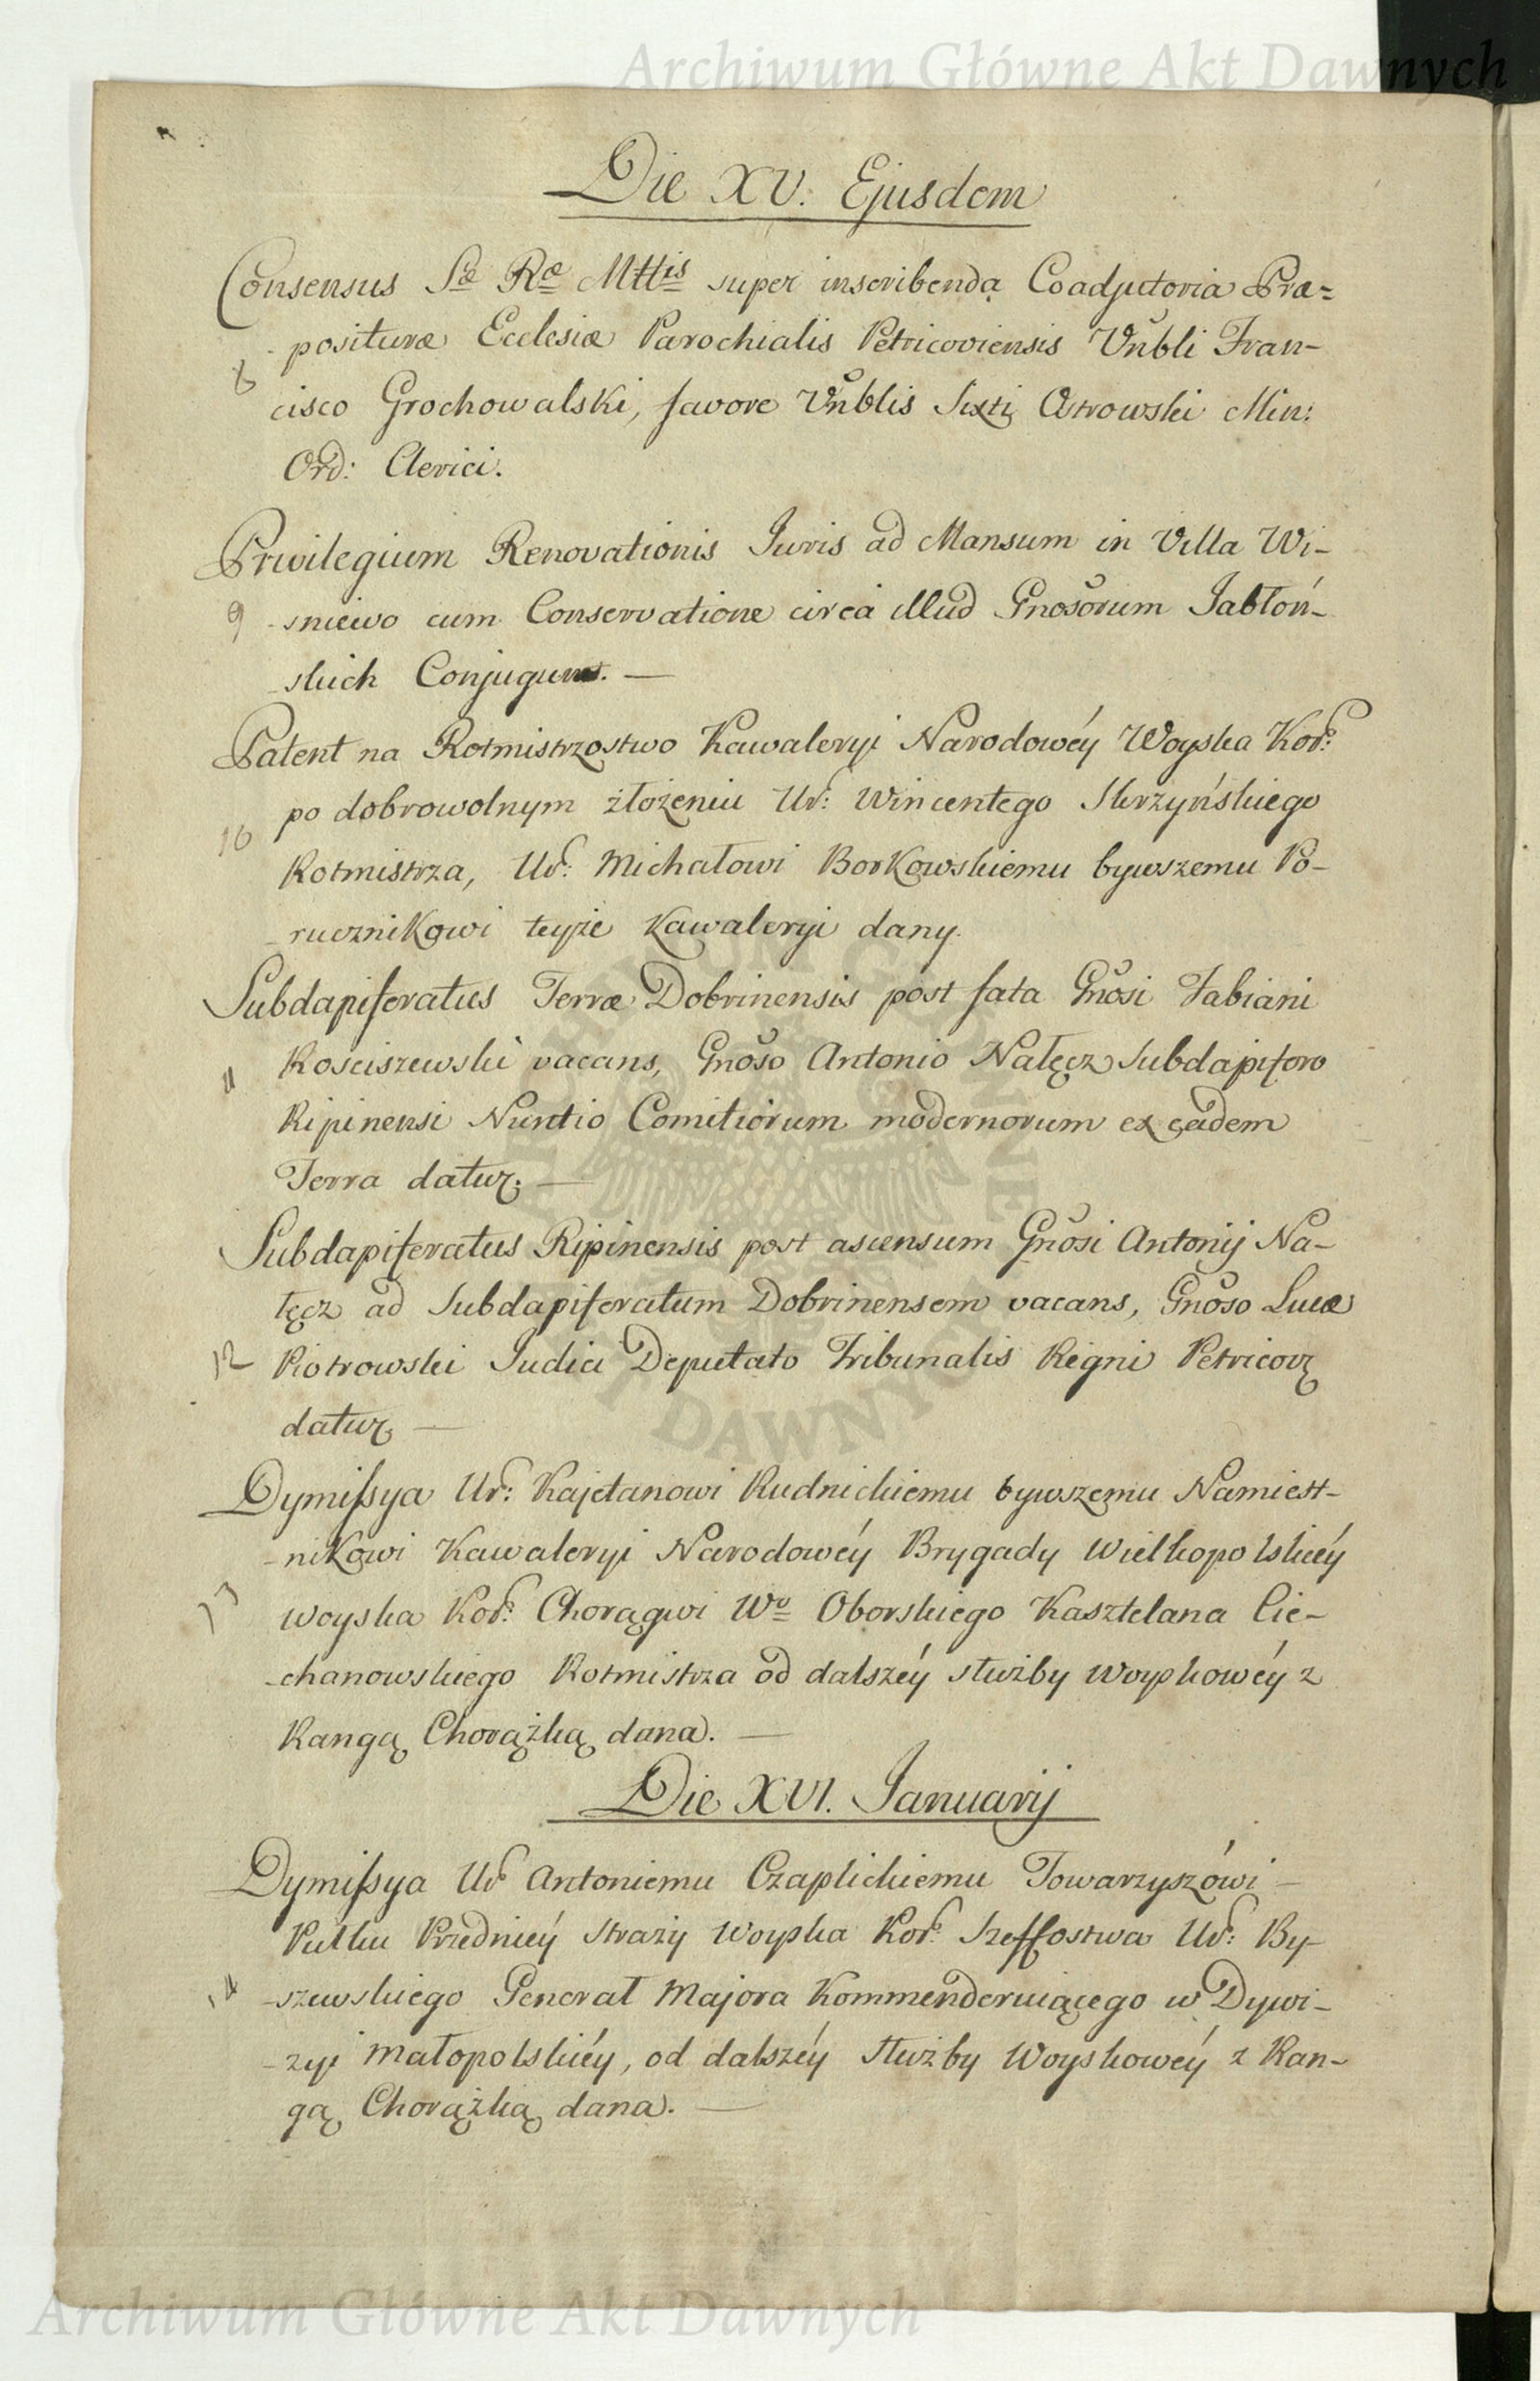 Archiwum Główne Akt Dawnych
Die XV. Ejusdem
Consensus Sæ Ræ Mttis super inscribenda Coadjutoria Præ=
posituræ Ecclesiæ Parochialis Petricoviensis Vnbli Fran-
8
cisco Grochowalski, favore Vnblis Sixti Ostrowski Min:
Ord: Clerici.
Privilegium Renovationis Juris ad Mansum in Villa Wi-
9 sniewo cum Conservatione circa illud Gnosorum Jabłoń-
skich Conjugum. —
Patent na Rotmistrzostwo Kawaleryi Narodowéy Woyska Kor:
po dobrowolnym złożeniu Ur: Wincentego Skrzyńskiego
10
Rotmistrza, Ur: Michałowi Borkowskiemu bywszemu Po-
rucznikowi teyże Kawaleryi dany.
Subdapiferatus Terræ Dobrinensis post fata Gnosi Fabiani
11 Kosciszewski vacans, Gnoso Antonio Nałęcz Subdapifero
Ripinensi Nuntio Comitiorum modernorum ex eadem
Terra datur. —
Subdapiferatus Ripinensis post ascensum Gnosi Antonij Na-
łęcz ad Subdapiferatum Dobrinensem vacans, Gnoso Lucæ
12 Piotrowski Judici Deputato Tribunalis Regni Petricov
datur —
Dymissya Ur: Kajetanowi Rudnickiemu bywszemu Namiest-
-nikowi Kawaleryi Narodowéy Brygady Wielkopolskiéy
13 woyska Kor: Chorągwi Wo Oborskiego Kasztelana Cie-
-chanowskiego Rotmistrza od dalszéy służby woyskowéy z
Rangą Chorążką dana. —
Die XVI. Januarij
Dymissya Ur Antoniemu Czaplickiemu Towarzyszówi —
Pułku Przedniéy Straży woyska Kor: Szeffostwa Ur: By-
14 -szewskiego Generał Majora Kommenderuiącego w Dywi-
-zyi Małopolskiéy, od dalszéy służby Woyskowéy z Ran-
gą Chorążką dana. —
Archiwum Główne Akt Dawnych